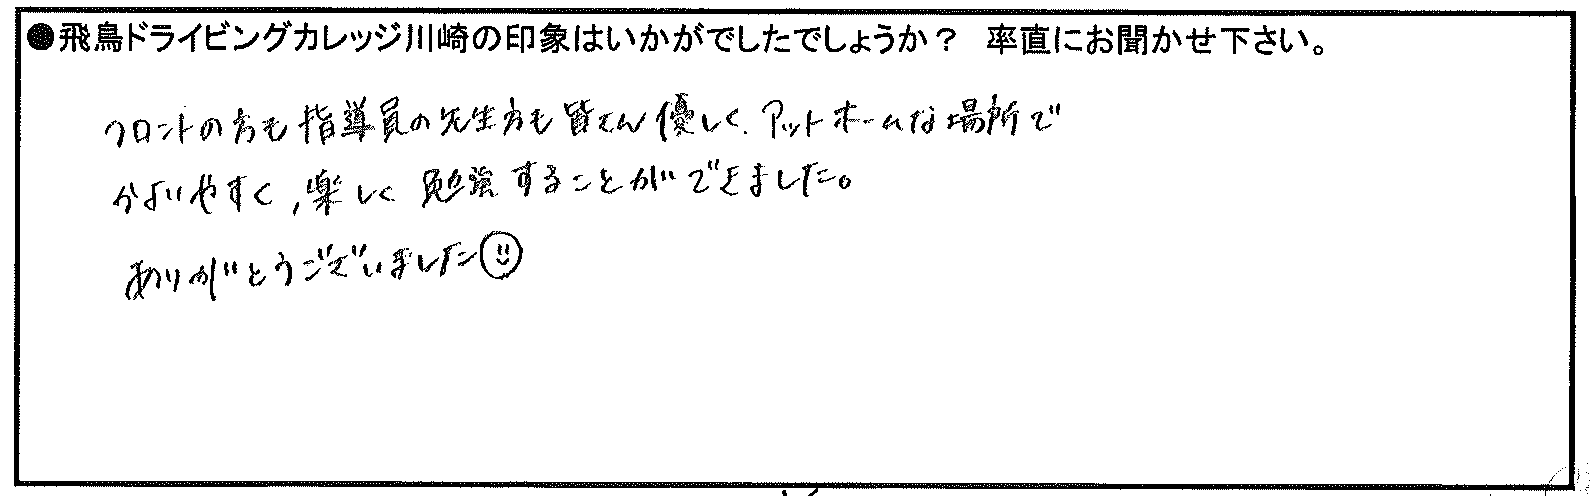 ●飛鳥ドライビングカレッジ川崎の印象はいかがでしたでしょうか？ 率直にお聞かせ下さい。
フロントの方も指導員の先生方も皆さん優しく、アットホームな場所で
分かりやすく、楽しく勉強することができました。
ありがとうございました☺